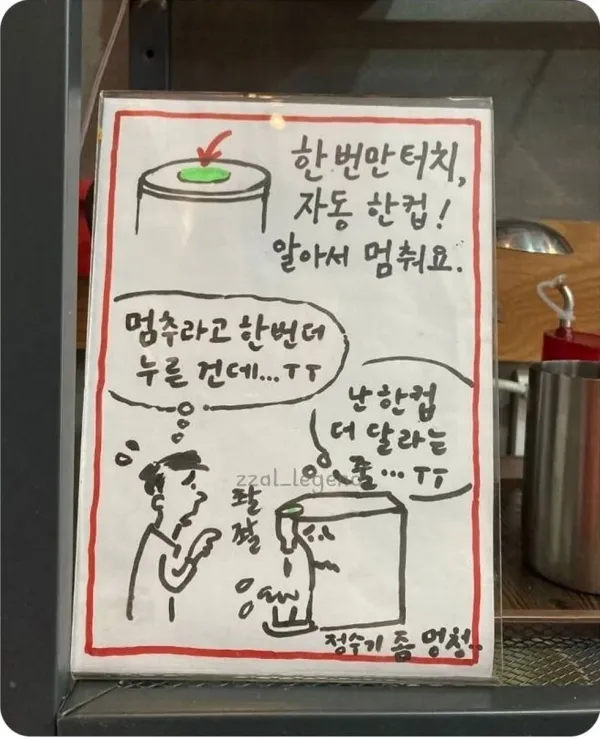 한번만터치,
자동 한컵!
알아서 멈춰요.
멈추라고 한번더
누른 건데...ㅠㅠ
난 한컵
더 달라는
줄...ㅠㅠ
zzal_legend
콸
콸
정수기 좀 멍청